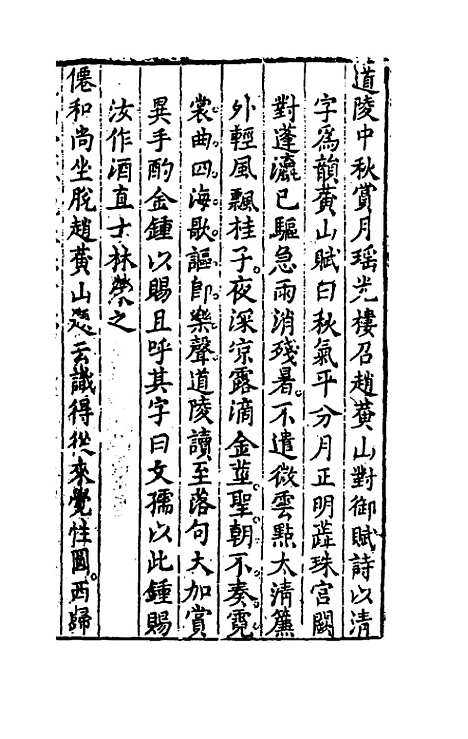 道陵中秋賞月瑶光樓召趙黄山對御賦詩以清
字爲韻黄山賦曰秋氣平分月正明蘂珠宫闕
對蓬瀛已驅急雨消殘暑不遣微雲點太清簾
外輕風飄桂子夜深凉露滴金莖聖朝不奏霓
裳曲四海歌謳即樂聲道陵讀至落句大加賞
異手酌金鍾以賜且呼其字曰文孺以此鍾賜
汝作酒直士林榮之
僊和尚坐脱趙黄山悲云識得從來覺性圓西歸